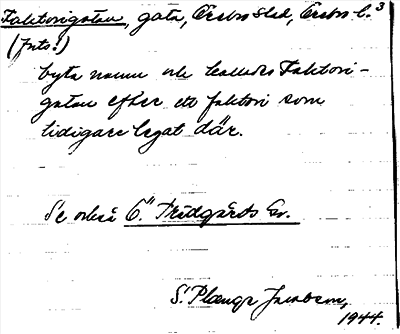 Faktorigatan, gata, Örebro stad, Örebro l. 3
(forts.)
byta namn och kallades Faktori-
gatan efter ett faktori som
tidigare legat där.
Se också Ö. Trädgårds Gr.
S. Plænge Jacobson,
1944.